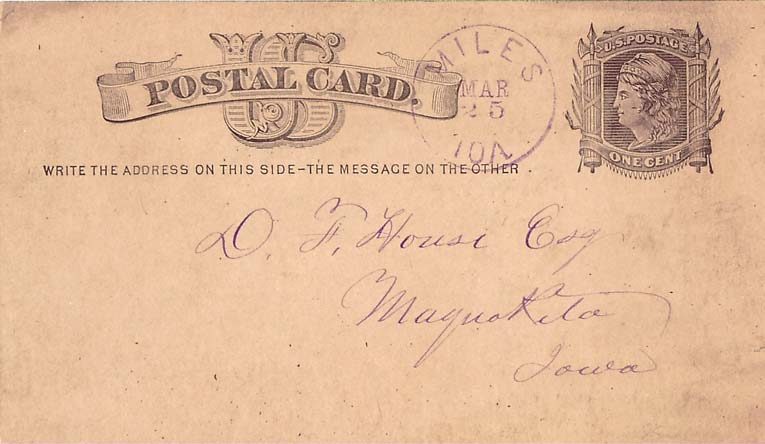 US
POSTAL CARD.
WRITE THE ADDRESS ON THIS SIDE-THE MESSAGE ON THE OTHER
MILES
MAR
25
IOA
U.S. POSTAGE
ONE CENT
D. F. House Esq
Maquoketa
Iowa